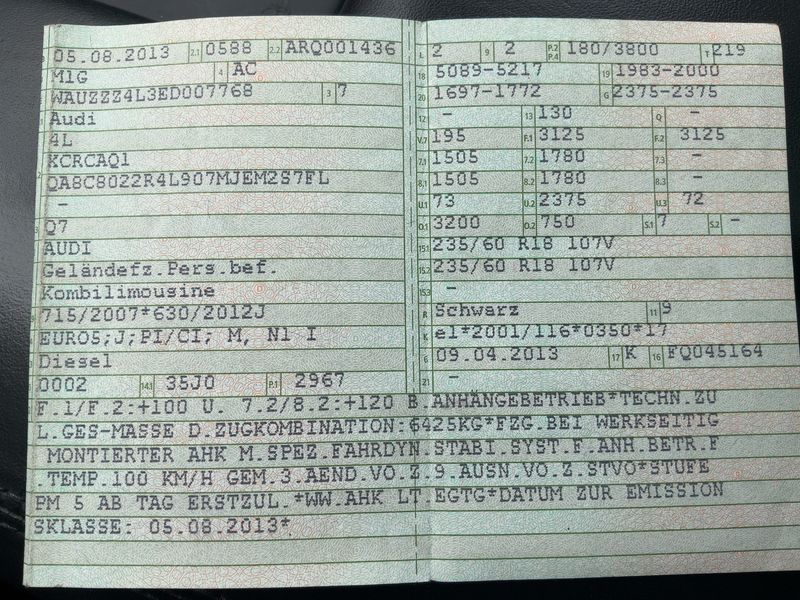 05.08.2013 2.1 0588 2.2 ARQ001436
M1G 4 AC
WAUZZZ4L3ED007768 3 7
Audi
4L
KCRCAQ1
QA8C8022R4L907MJEM2S7FL
-
Q7
AUDI
Geländefz.Pers.bef.
Kombilimousine
715/2007*630/2012J
EURO5;J;PI/CI; M, N1 I
Diesel
0002 14.1 35J0 P.1 2967
L 2 9 2 P.2 P.4 180/3800 T 219
18 5089-5217 19 1983-2000
20 1697-1772 G 2375-2375
12 - 13 130 Q -
V.7 195 F.1 3125 F.2 3125
7.1 1505 7.2 1780 7.3 -
8.1 1505 8.2 1780 8.3 -
U.1 73 U.2 2375 U.3 72
O.1 3200 O.2 750 S.1 7 S.2 -
15.1 235/60 R18 107V
15.2 235/60 R18 107V
15.3 -
R Schwarz 11 9
K e1*2001/116*0350*17
6 09.04.2013 17 K 16 FQ045164
21 -
F.1/F.2:+100 U. 7.2/8.2:+120 B.ANHÄNGEBETRIEB*TECHN.ZU
L.GES-MASSE D.ZUGKOMBINATION:6425KG*FZG.BEI WERKSEITIG
MONTIERTER AHK M.SPEZ.FAHRDYN.STABI.SYST.F.ANH.BETR.F
.TEMP.100 KM/H GEM.3.AEND.VO.Z.9.AUSN.VO.Z.STVO*STUFE
PM 5 AB TAG ERSTZUL.*WW.AHK LT.EGTG*DATUM ZUR EMISSION
SKLASSE: 05.08.2013*